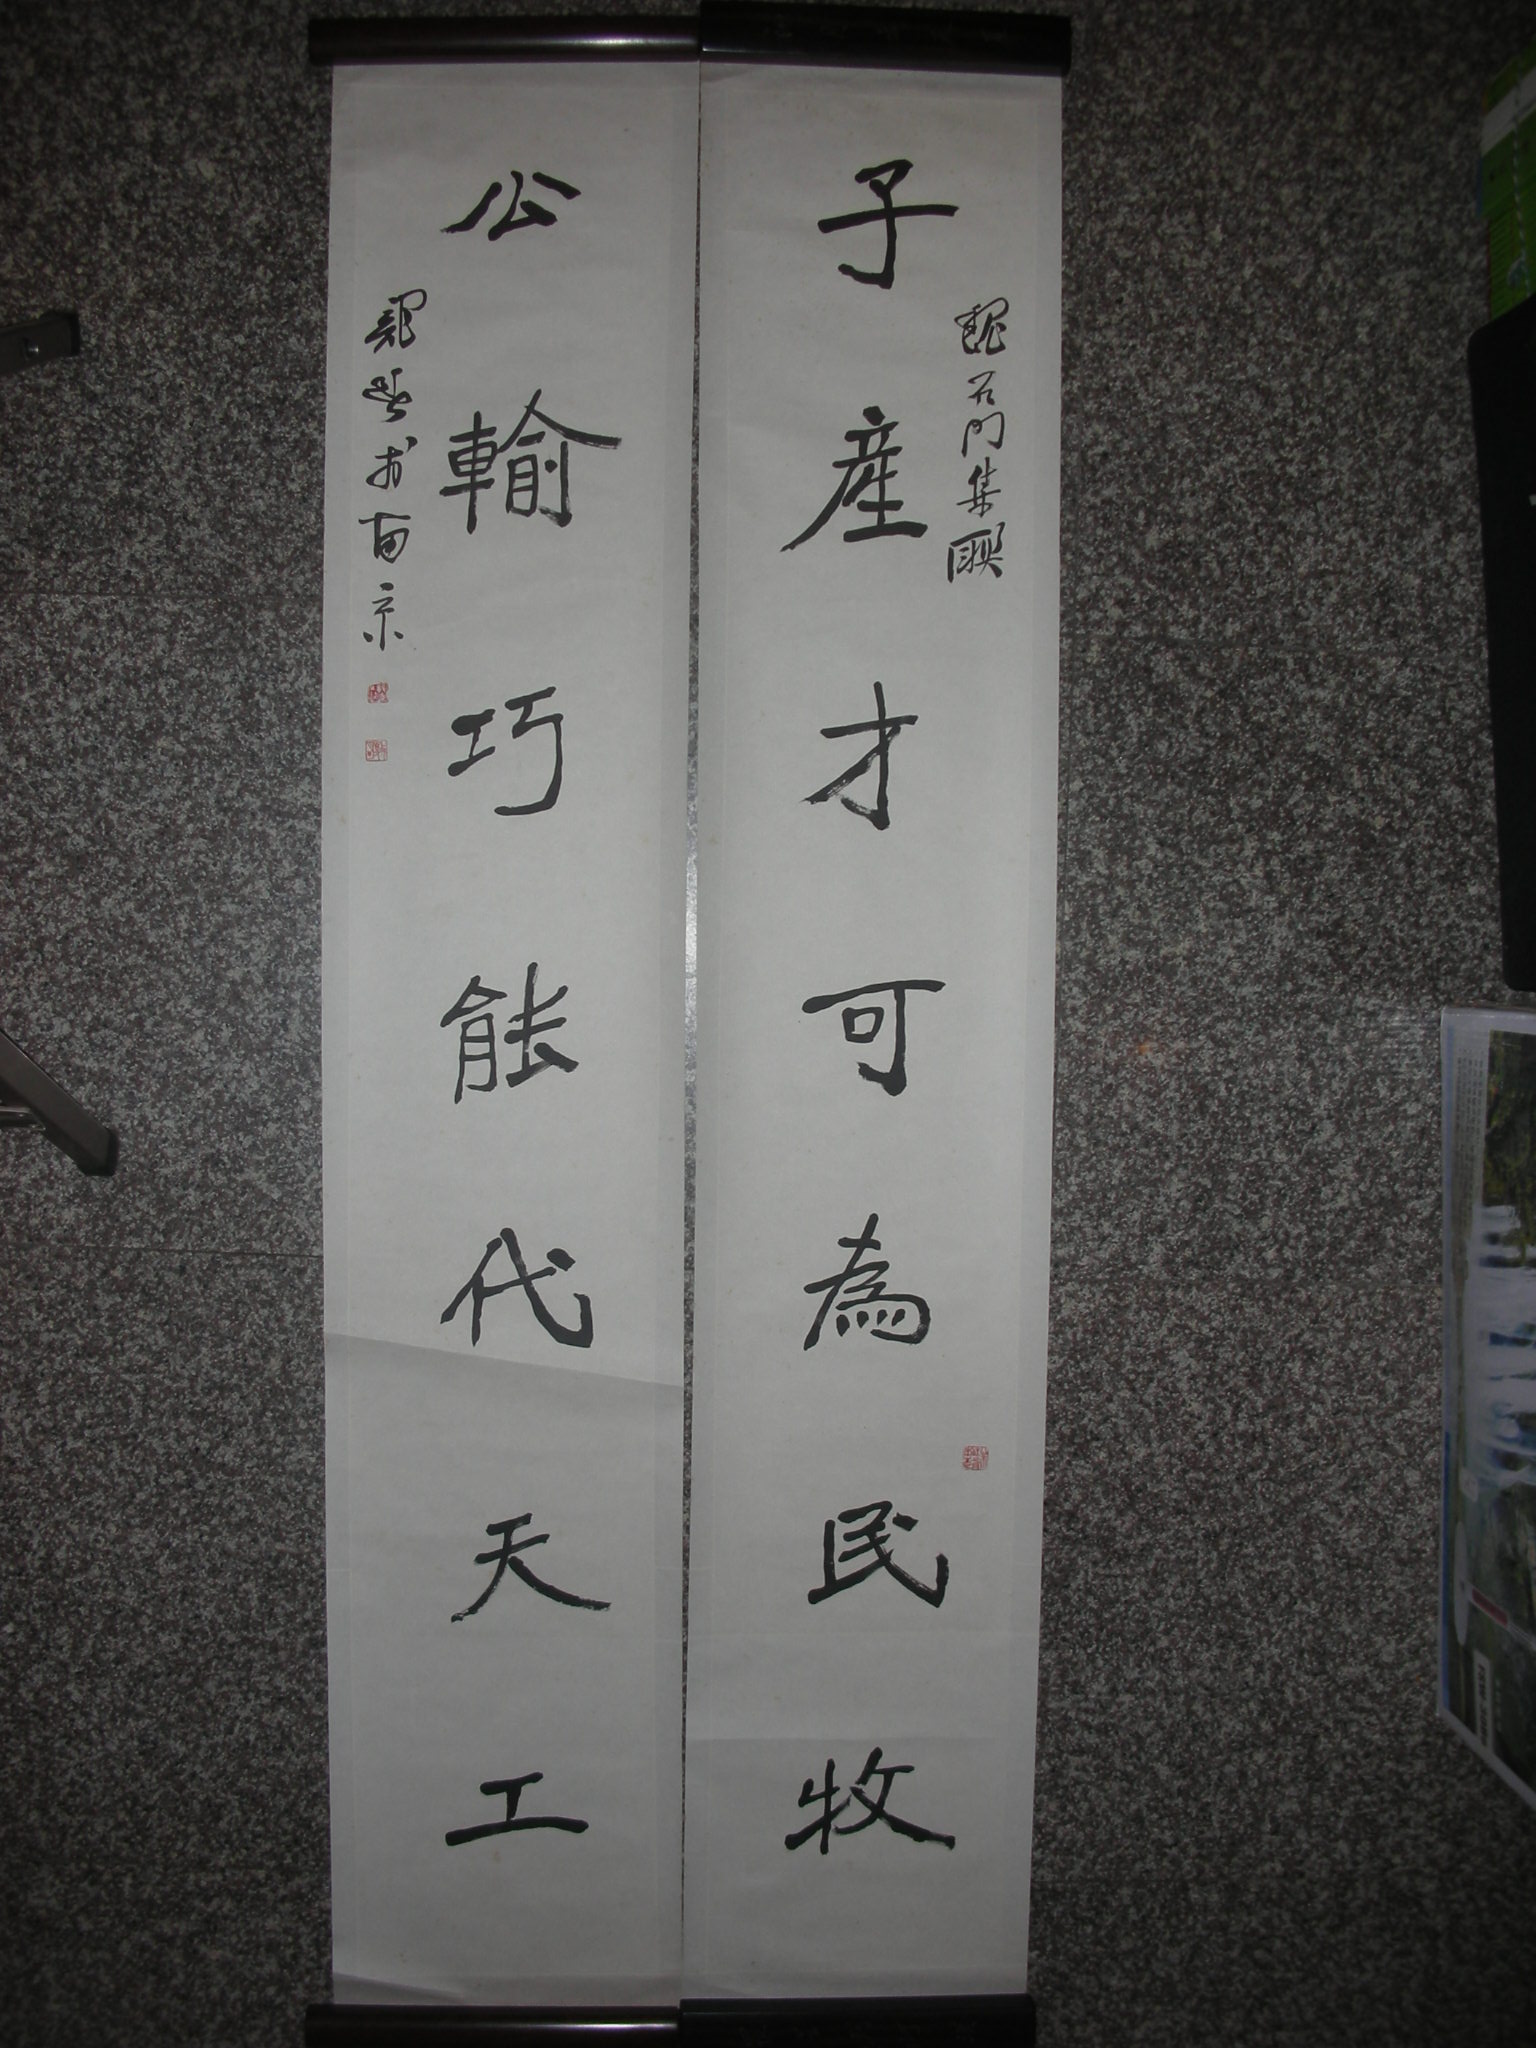 子產才可為民牧
魏石門集聯
公輸巧能代天工
於南京